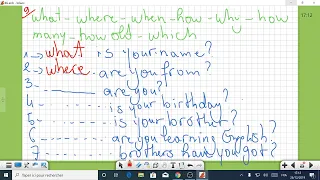 what - where - when - how - why - how
many - how old - which
1 → what is your name?
2 → where are you from?
3 ------ are you?
4 ------ is your birthday?
5 ------ is your brother?
6 ------ are you learning English?
7 ------ brothers have you got?
17:12
Taper ici pour rechercher
17:12